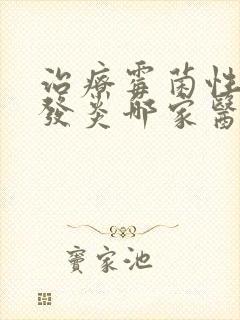 治療霉菌性
發炎哪家醫
竇家池